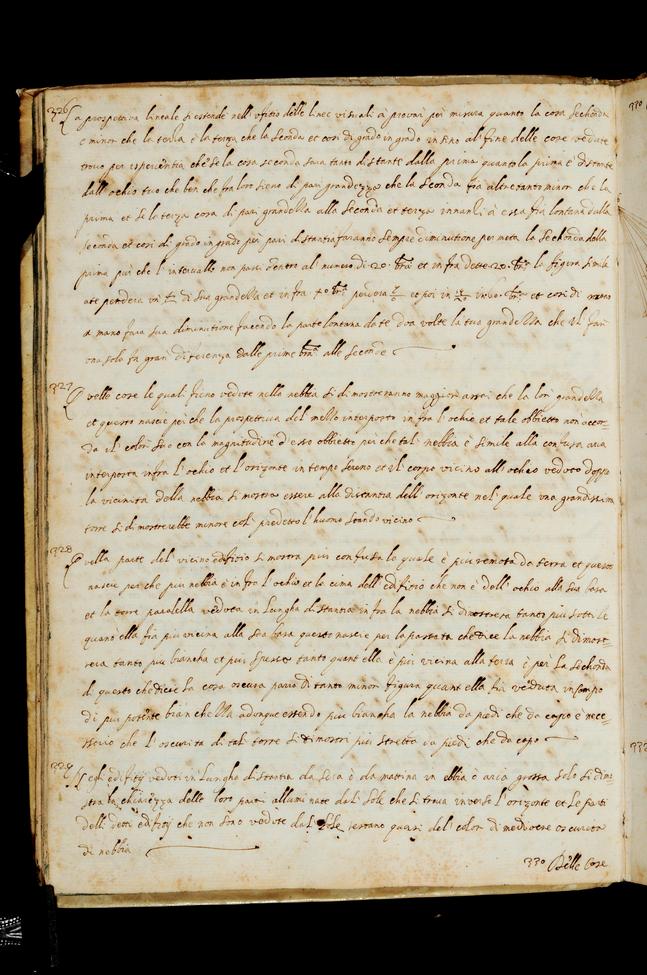 326 La prospettiva lineale si estende nell'ufitio delle linee visuali à provar per misura quanto la cosa Sechonda
è minor che la terza è la terza che la seconda et così di grado in grado in sino al fine delle cose vedute
trovo per isperientia che se la cosa seconda sara tanto distante dalla prima quanto la prima è distante
dall'ochio tuo che ben che fra loro sieno di pari grandezza che la seconda fia altretanto minor che la
prima et se la terza cosa di pari grandezza alla seconda et terza innanzi à essa fia lontana dalla
seconda et così di grado in grado per pari distantia faranno sempre diminutione per meta la sechonda dalla
prima pur che l'intervallo non passi dentro al numero di 20. bra. et infra dette 20. bra. la figura simile
ate perdera di sua grandezza et infra 40 bra. perdera et poi in bra. et così di mano
in mano fara sua diminutione facendo la parte lontana da te doa volte la tua grandezza che il far
una sola fa gran diferenza dalle prime bra. alle seconde
327 Quelle cose le quali fieno vedute nella nebbia si dimosteranno maggiori assai che la lor grandezza
et questo nascie per che la prospettiva del mezzo interposto infra l'ochio et tale obbietto non accor-
da il color suo con la magnitudine d'esso obbietto per che tal nebbia è simile alla confusa aria
interposta infra l'ochio et l'orizonte in tempo sereno et il corpo vicino all'ochio veduto doppo
la vicinita della nebbia si mostra essere alla distanza dell'orizonte nel quale una grandissima
torre si dimosterebbe minore ch'l predetto l'huomo stando vicino
328 Quella parte del vicino edifitio si mostra più confusa la quale è più remota da terra et questo
nascie per che piu nebbia è infra l'ochio et la cima dell'edifitio che non è dall'ochio alla sua basa
et la torre paralella veduta in lungha distantia infra la nebbia si dimostrera tanto piu sottile
quano ella fia piu vicina alla sua basa questo nascie per la passata che dice la nebbia si dimost-
rera tanto piu biancha et piu spessa tanto quant'ella è più vicina alla terra è per la sechonda
di questo che dicie la cosa oscura parra di tanto minor figura quant'ella fia veduta in campo
di piu potente bianchezza adonque essendo piu biancha la nebbia da piedi che da capo è nece-
ssario che l'oscurita di tal torre si dimostri più stretta da piedi che da capo
329 Negli edifitij veduti in lungha distantia da sera è da mattina in nebbia è aria grossa solo si dimo-
stra la chiarezza delle loro parti alluminate dal sole che si trova inverse l'orizonte et le parti
delli detti edifitij che non sono vedute dal Sole restano quasi del color di mediocre oscurita
di nebbia
330 Delle Cose